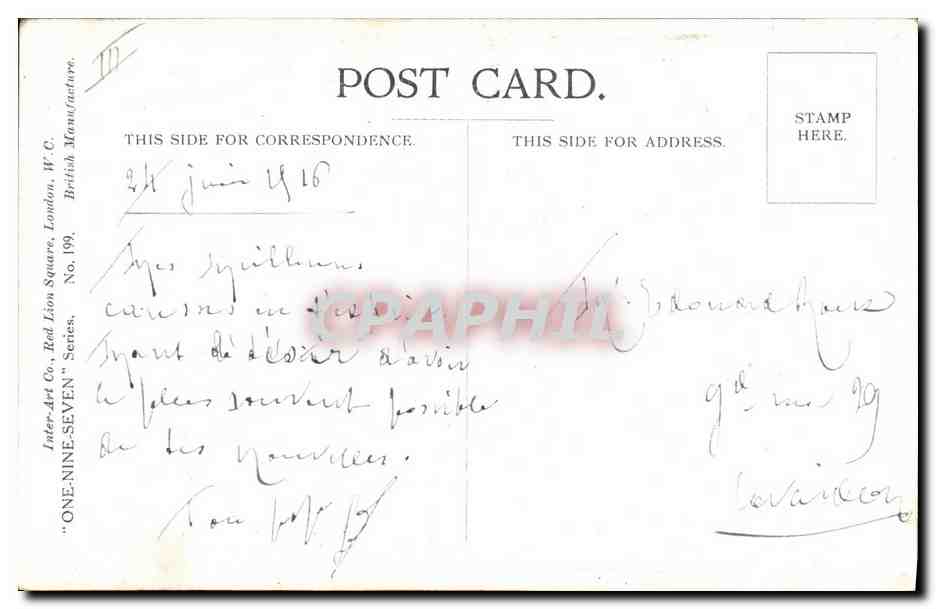 III
POST CARD.
THIS SIDE FOR CORRESPONDENCE.
24 juin 1916
Mes meilleures
caresses en
ayant désir d'avoir
le plus souvent possible
de tes nouvelles.
Ton
THIS SIDE FOR ADDRESS.
STAMP
HERE.
Edouard
Gde rue 29
Inter-Art Co., Red Lion Square, London, W.C.
"ONE-NINE-SEVEN" Series. No. 199. British Manufacture.
CPAPHIL